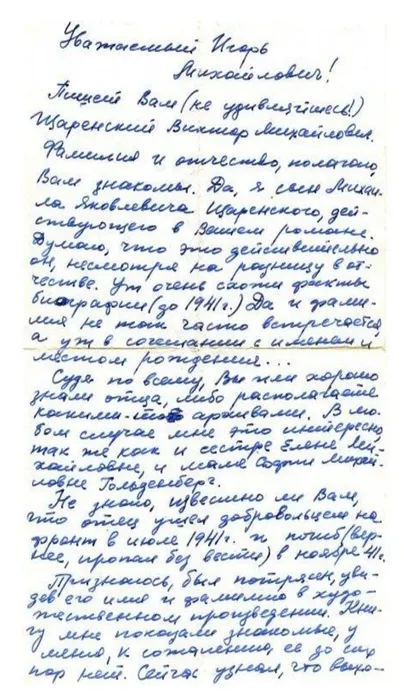 Уважаемый Игорь
Михайлович!
Пишет Вам (не удивляйтесь!)
Щаренский Виктор Михайлович.
Фамилия и отчество, полагаю,
Вам знакомы. Да, я сын Михаи-
ла Яковлевича Щаренского, дей-
ствующего в Вашем романе.
Думаю, что это действительно
он, несмотря на разницу в от-
честве. Уж очень схожи факты
биографии (до 1941г.) Да и фами-
лия не так часто встречается,
а уж в сочетании с именем и
местом рождения...
Судя по всему, Вы или хорошо
знали отца, либо располагаете
какими-то архивами. В лю-
бом случае мне это интересно,
так же как и сестре Елене Ми-
хайловне, и маме Софьи Михай-
ловне Гольденберг.
Не знаю, известно ли Вам,
что отец ушел добровольцем на
фронт в июле 1941г. и погиб (вер-
нее, пропал без вести) в ноябре 41г.
Признаюсь, был потрясен, уви-
дев его имя и фамилию в худо-
жественном произведении. Кни-
гу мне показали знакомые, у
меня, к сожалению, ее до сих
пор нет. Сейчас узнал, что выхо-